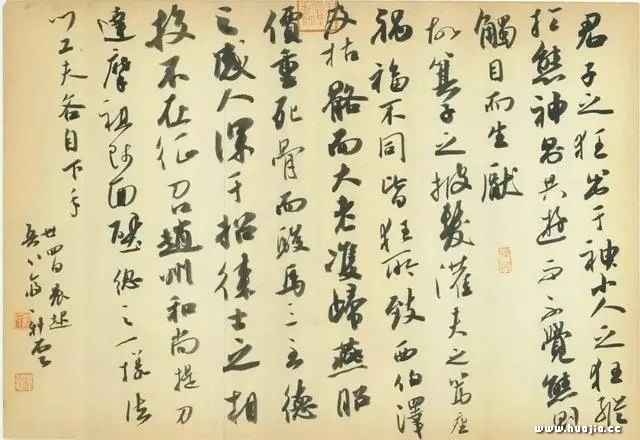 君子之狂出于神小人之狂縱
於態神則共遊而不覺態則
觸目而生厭
故箕子之披髮灌夫之罵座
禍福不同皆狂所致西伯澤
及枯骼而大老雙歸燕昭
價重死骨而駿馬三至德
之感人深于招徠士之相
投不在征召趙州和尚提刀
達摩祖師面壁總之一樣法
門工夫各自下手
廿四日晨起
www.huajia.cc